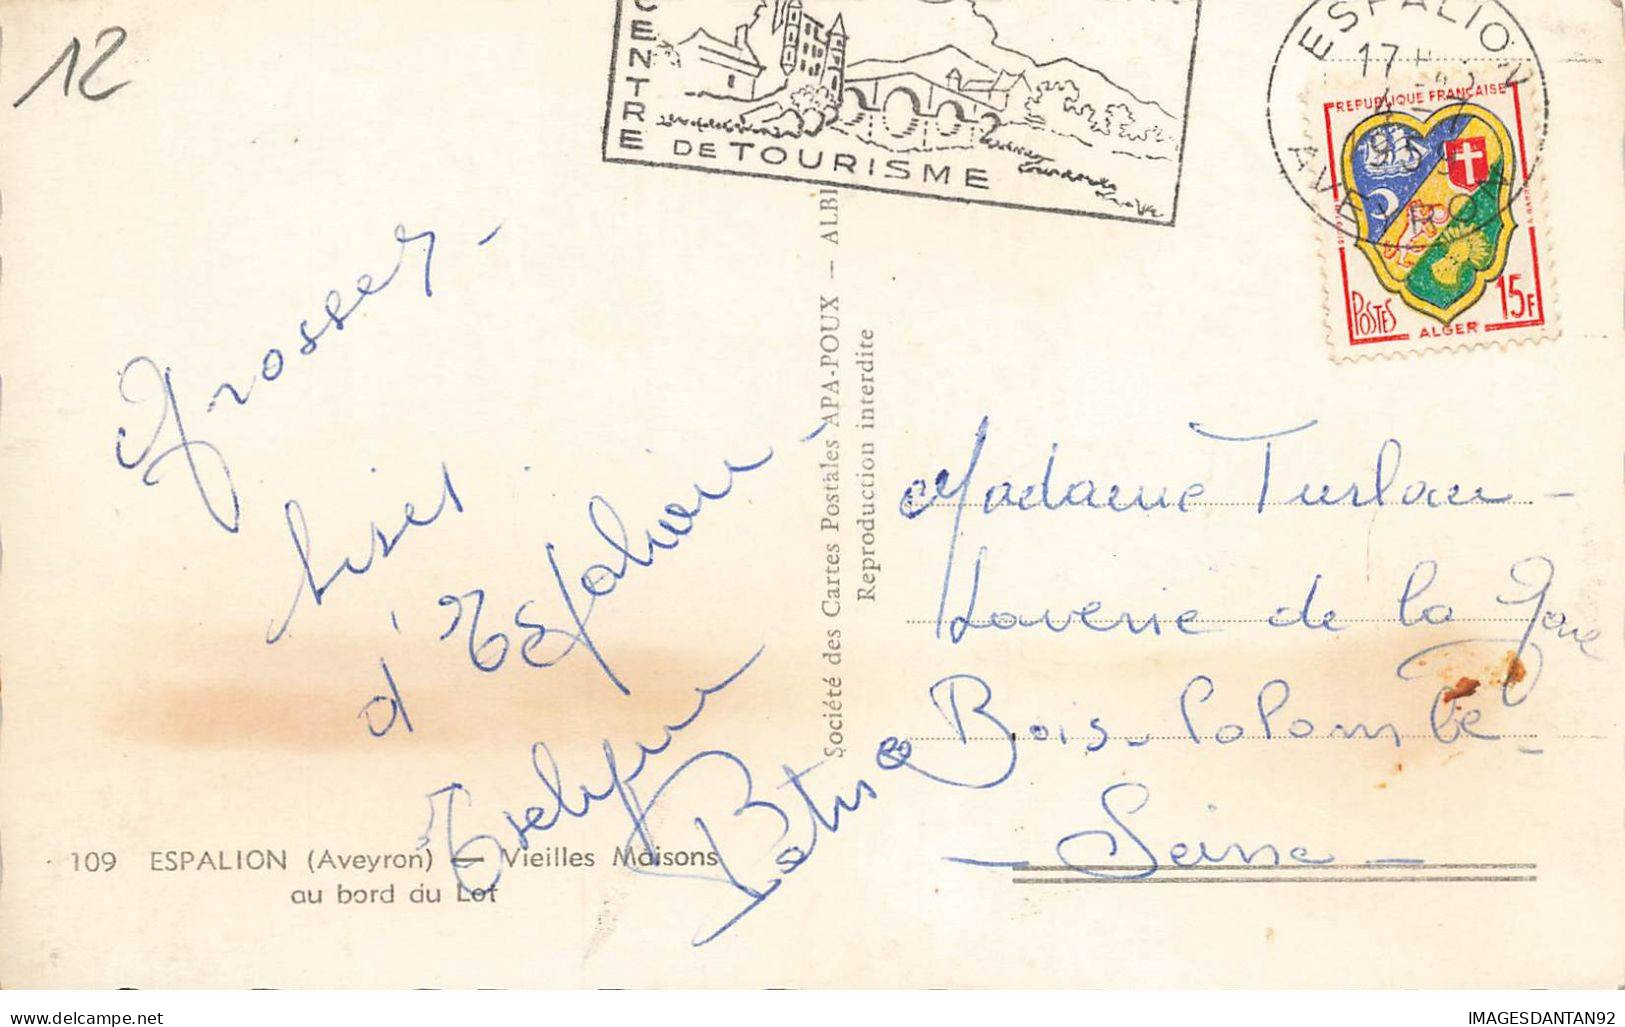 12
CENTRE
DE TOURISME
ESPALION
17 H
4 - 7
1959
AVEYRON
REPUBLIQUE FRANÇAISE
POSTES
ALGER
15F
Grosses
bises
d'Espalion
Evelyne
Société des Cartes Postales APA-POUX — ALBI
Reproduction interdite
Madame Turlan -
Laverie de la Gare
Bois-Colombe -
- Seine -
109 ESPALION (Aveyron) — Vieilles Maisons
au bord du Lot
delcampe.net
IMAGESDANTAN92